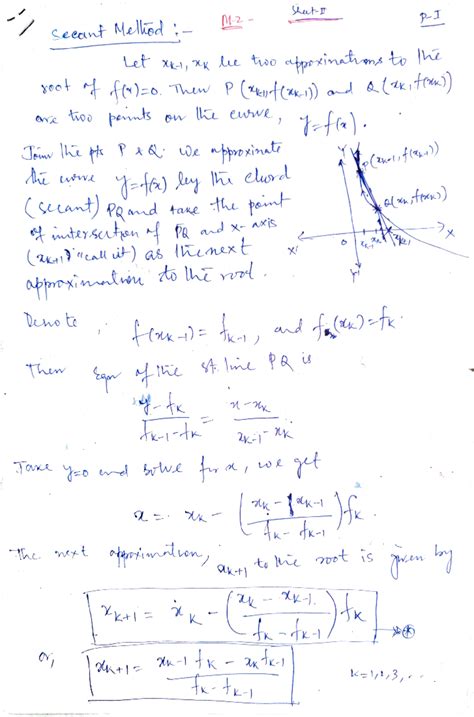 Secant Method :-
M-2 -
Sheet-II
P-I
Let x_{k-1}, x_k be two approximations to the
root of f(x)=0. Then P(x_{k-1}, f(x_{k-1})) and Q(x_k, f(x_k))
are two points on the curve, y=f(x).
Join the pts P & Q. We approximate
the curve y=f(x) by the chord
(secant) PQ and take the point
of intersection of PQ and x-axis
(x_{k+1} "call it") as the next
approximation to the root.
Y
P(x_{k-1}, f(x_{k-1}))
Q(x_k, f(x_k))
X'
O
x_{k-1}
x_k
x_{k+1}
X
Y'
Denote, f(x_{k-1}) = f_{k-1}, and f(x_k) = f_k.
Then Eqn of the st. line PQ is
\frac{y-f_k}{f_{k-1}-f_k} = \frac{x-x_k}{x_{k-1}-x_k}
Take y=0 and solve for x, we get
x = x_k - \left(\frac{x_k - x_{k-1}}{f_k - f_{k-1}}\right) f_k
The next approximation, x_{k+1} to the root is given by
x_{k+1} = x_k - \left(\frac{x_k - x_{k-1}}{f_k - f_{k-1}}\right) f_k
or, x_{k+1} = \frac{x_{k-1} f_k - x_k f_{k-1}}{f_k - f_{k-1}}
k=1,2,3,...